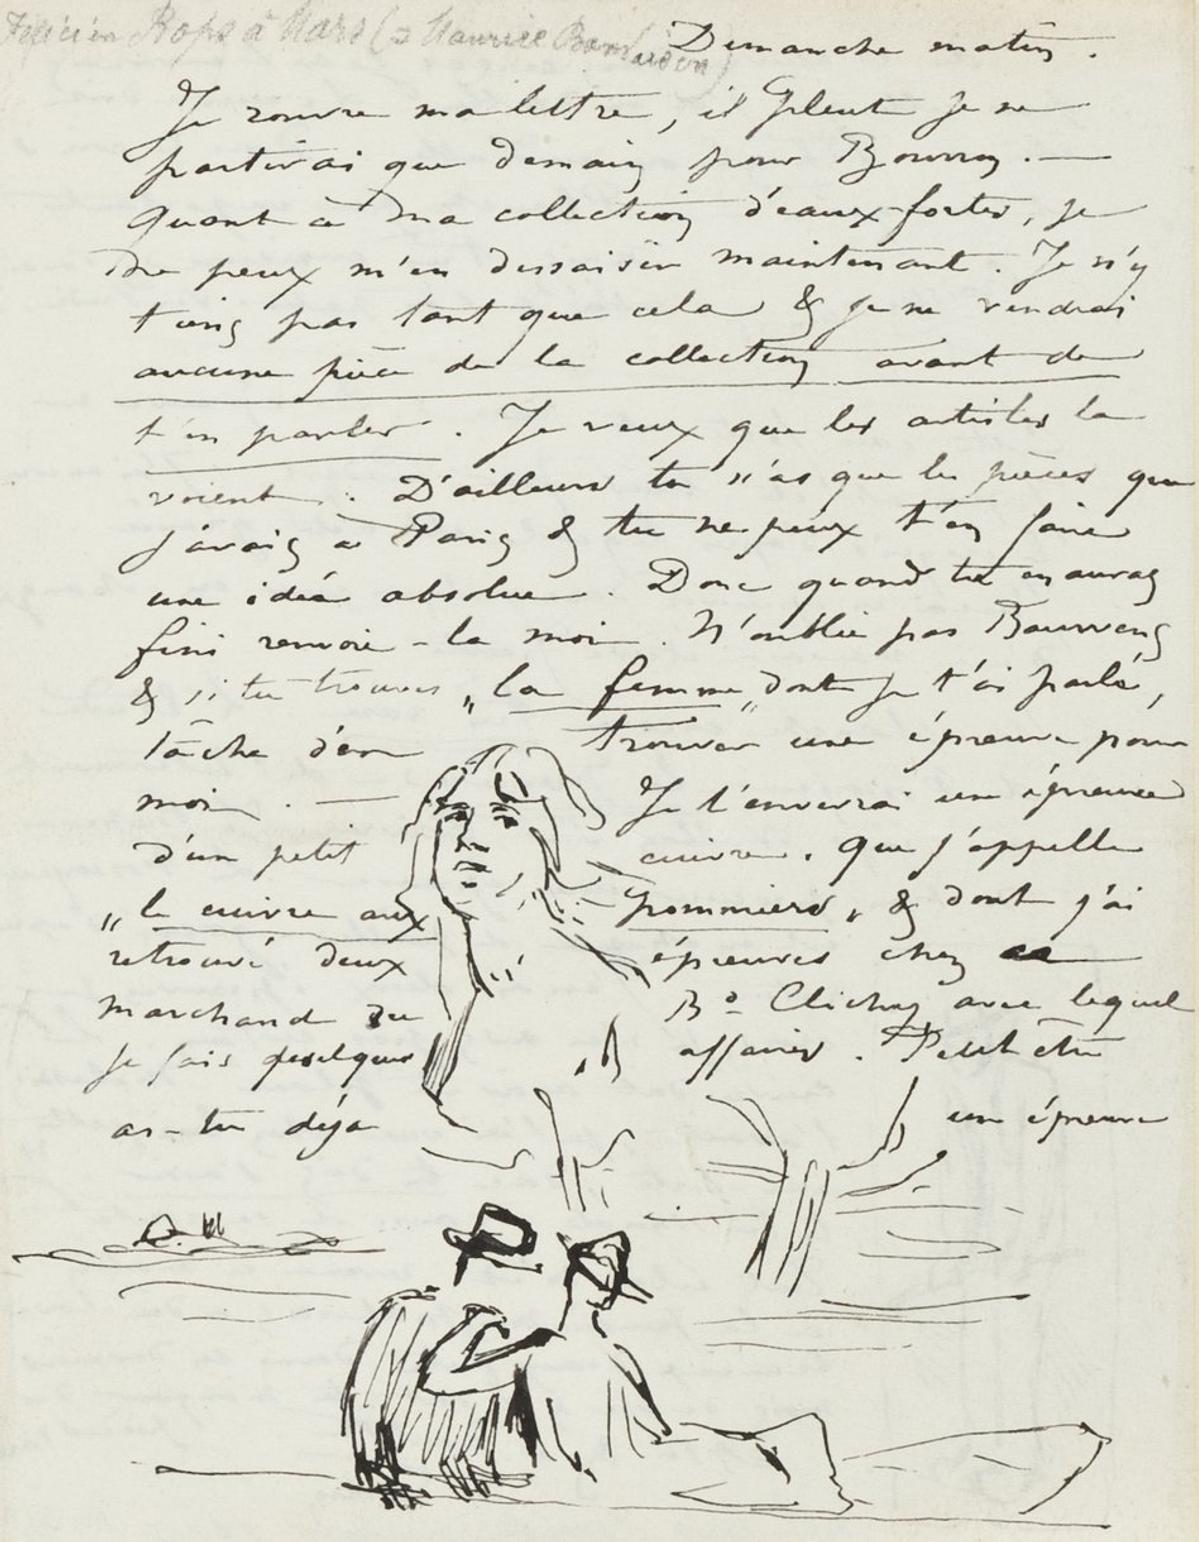 Félicien Rops à Mars (= Maurice Bonvoisin)
Dimanche matin.
Je rouvre ma lettre, il pleut je ne
partirai que demain pour Bourron. —
Quant à ma collection d'eaux-fortes, je
ne peux m'en dessaisir maintenant. Je n'y
tiens pas tant que cela & je ne vendrai
aucune pièce de la collection avant de
t'en parler. Je veux que les artistes la
voient. D'ailleurs tu n'as que les pièces que
j'avais à Paris & tu ne peux t'en faire
une idée absolue. Donc quand tu en auras
fini renvoie-la moi. N'oublie pas Bauwens
& si tu trouves „la femme„ dont je t'ai parlé,
tâche d'en trouver une épreuve pour
moi. — Je t'enverrai une épreuve
d'un petit cuivre. que j'appelle
„le cuivre aux pommiers„ & dont j'ai
retrouvé deux épreuves chez
marchand du Bd Clichy avec lequel
je fais quelques affaires. Peut être
as-tu déja une épreuve